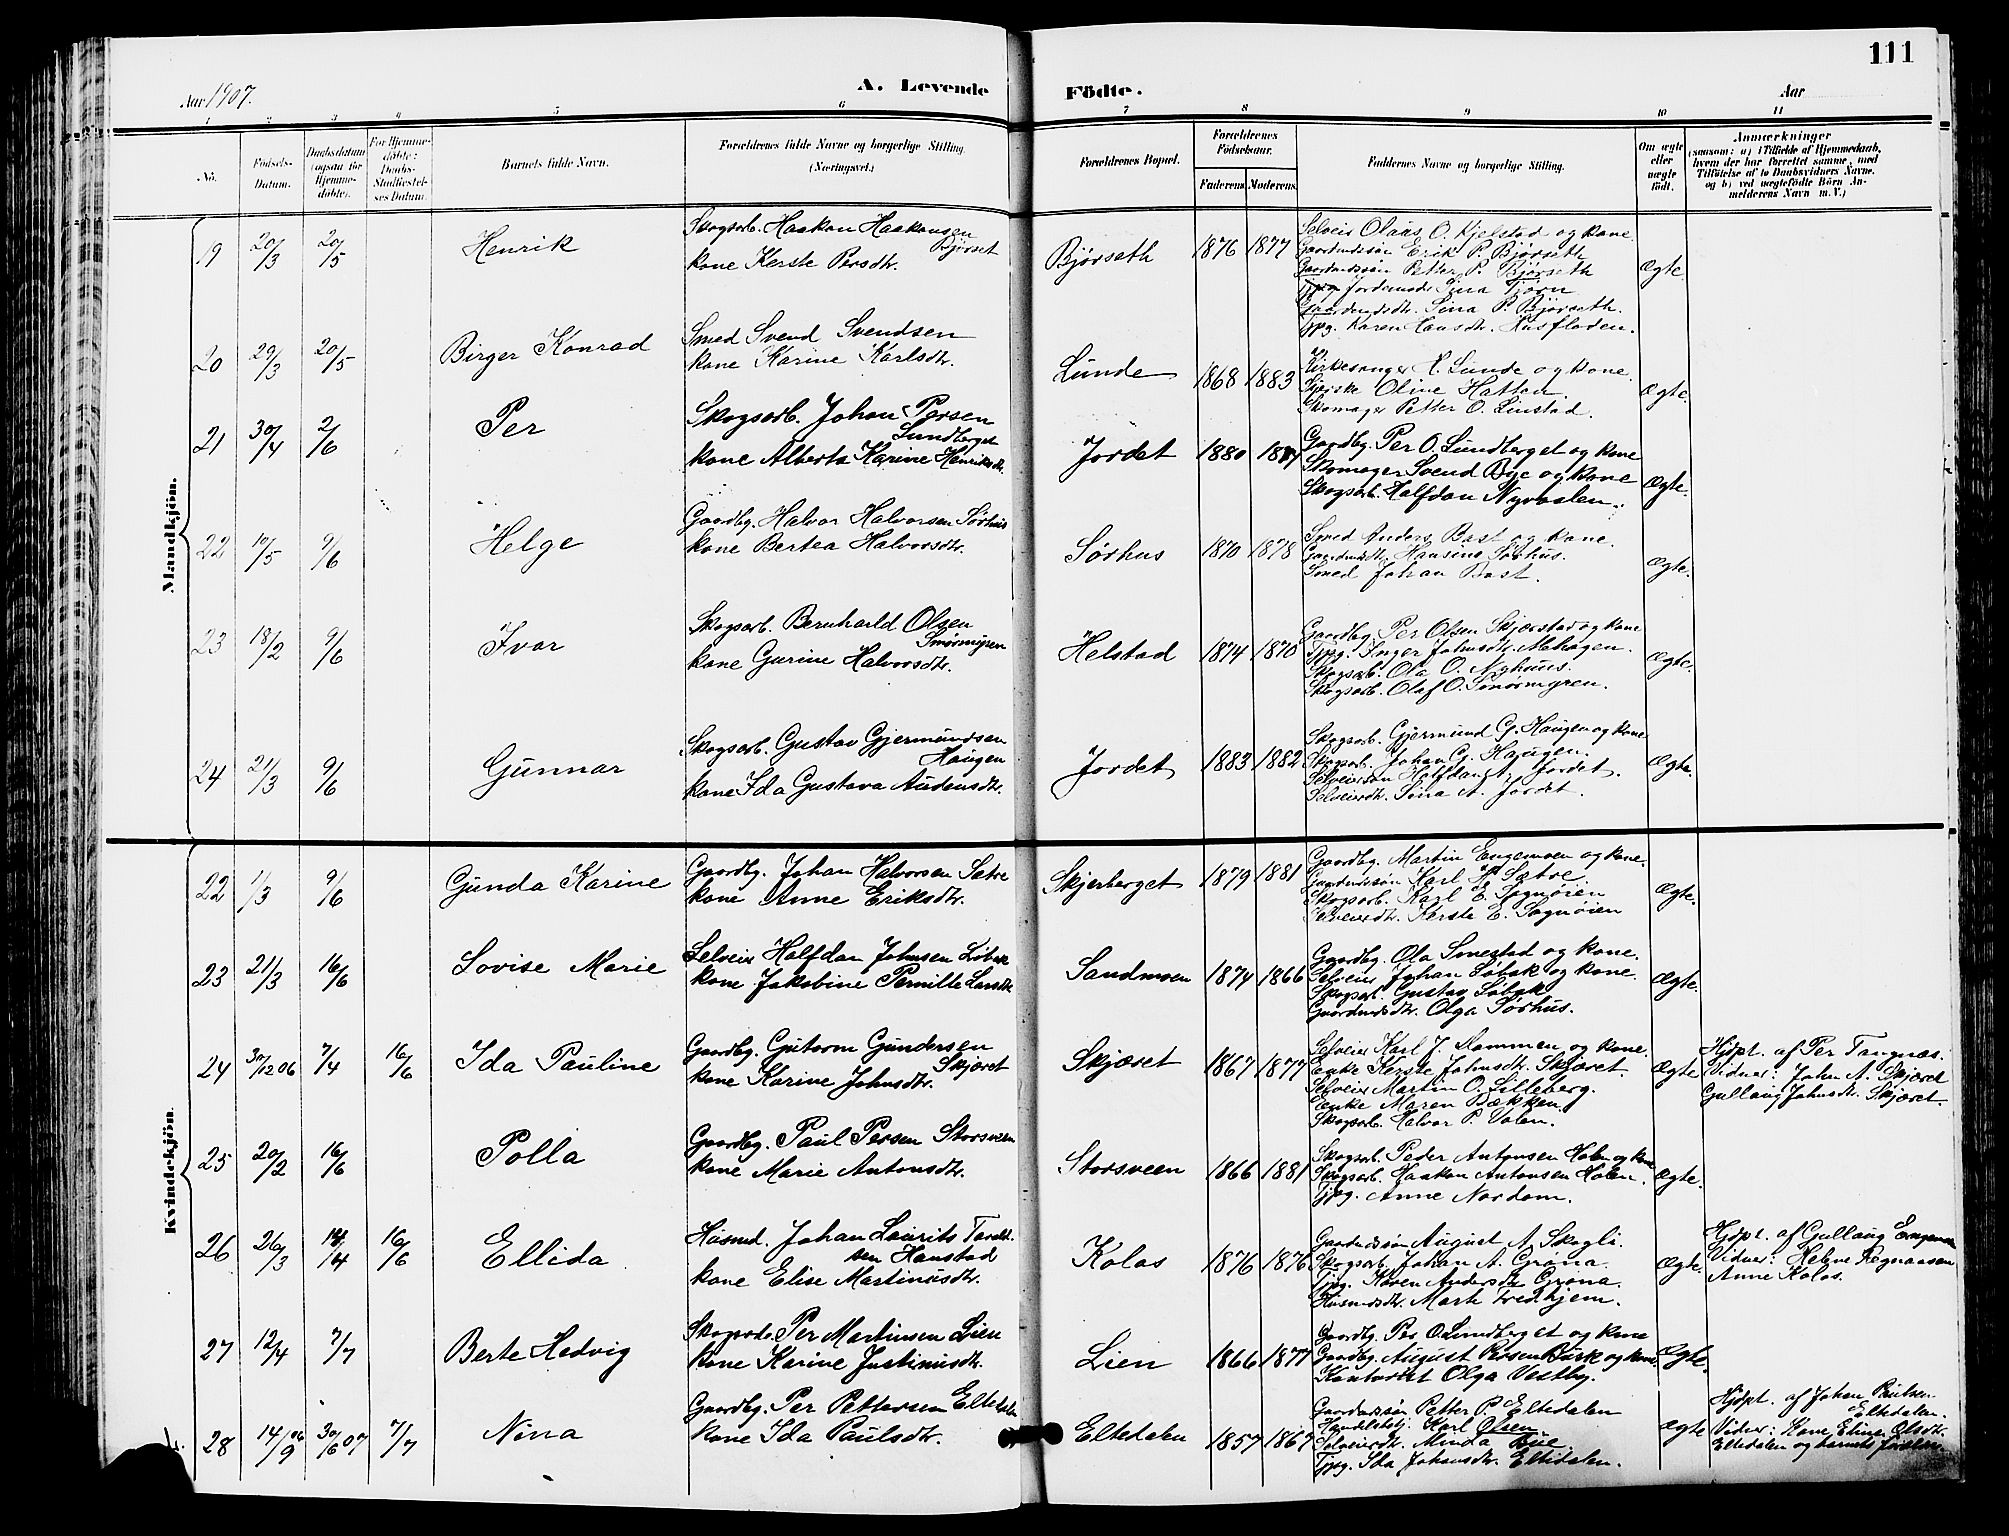 111
Aar 1907.
A. Levende
Födte.
Aar
1 2 3 4 5 6 7 8 9 10 11
No.
Födsels-Datum.
Daabsdatum (ogsaa for Hjemme-döbte).
For Hjemme-döbte: Daabs-Stadfæstel-ses Datum.
Barnets fulde Navn.
Forældrenes fulde Navne og borgerlige Stilling (Næringsvei.)
Forældrenes Bopæl.
Forældrenes Födselsaar.
Faderens. Moderens.
Faddernes Navne og borgerlige Stilling.
Om ægte eller uægte födt.
Anmærkninger
(saasom: a) i Tilfælde af Hjemmedaab, hvem der har forrettet samme, med Tilföielse af to Daabsvidners Navne, og b) ved uægtefödte Börn An-melderens Navn m. V.)
Mandkjön.
19 20/3 20/5 Henrik
Skogsarb. Haakon Haakonsen
Bjørset
kone Kerste Persdtr.
Bjørseth 1876 1877
Selveier Olaus O. Kjelstad og kone
Gaardmdssøn Erik P. Bjørseth
Gaardmdssøn Petter P. Bjørseth
Jordemoder Sina Tjørn
Gaardmdsdtr. Sina P. Bjørseth.
Tjpg. Karen Hansdtr. Husfloden.
Ægte.
20 29/3 20/5 Birger Konrad
Smed Svend Svendsen
kone Karine Karlsdtr.
Lunde 1868 1883
Kirkesanger H. Lunde og kone.
Syerske Oline Hatten.
Skomager Petter O. Linstad.
Ægte.
21 30/4 2/6 Per
Skogsarb. Johan Persen
Lundberget
kone Alberta Karine Henriksdtr.
Jordet 1880
Gaardbg. Per O. Lundberget og kone
Skomager Svend Bye og kone
Skogsarb. Halfdan Nyvolden.
Ægte.
22 10/5 9/6 Helge
Gaardbg. Halvor Halvorsen Sørhus
kone Bertea Halvorsdtr.
Sørhus 1870 1878
Smed Anders Bast og kone.
Gaardmdsdtr. Hansine Sørhus.
Smed Johan Bast.
Ægte.
23 18/2 9/6 Ivar
Skogsarb. Bernhard Olsen
Smørmyren
kone Gurine Halvorsdtr.
Helstad 1874 1870
Gaardbg. Per Olsen Skjærstad og kone
Tjpg. Inger Johnsdtr. Mehagen.
Skogsarb. Ola O. Nyhuus.
Skogsarb. Olaf O. Smørmyren.
Ægte.
24 21/3 9/6 Gunnar
Skogsarb. Gustav Gjermundsen
Haugen
kone Ida Gustava Audensdtr.
Jordet 1883 1882
Skogsarb. Gjermund G. Haugen og kone
Skogsarb. Johan G. Haugen.
Selveiersøn Halfdan A. Jordet.
Selveierdtr. Sina A. Jordet.
Ægte.
Kvindekjön.
22 1/3 9/6 Gunda Karine
Gaardbg. Johan Halvorsen Sætre
kone Anne Eriksdtr.
Skjærberget 1879 1881
Gaardbg. Martin Engemoen og kone.
Gaardmdssøn Karl H. Sætre.
Skogsarb. Karl E. Sognøien
Selveierdtr. Kerste E. Sognøien
Ægte.
23 21/3 16/6 Lovise Marie
Selveier Halfdan Johnsen Løbak
kone Jakobine Pernille Larsdtr.
Sandmoen 1874 1866
Gaardbg. Ola Smestad og kone.
Selveier Johan Løbak og kone.
Skogsarb. Gustav Løbak
Gaardmdsdtr. Olga Sørhus.
Ægte.
24 30/12 06 7/4 16/6 Ida Pauline
Gaardbg. Gutorm Gundersen
Skjæret
kone Karine Johnsdtr.
Skjæret 1867 1877
Selveier Karl J. Rammen og kone.
Enke Kerste Johnsdtr. Skjæret.
Selveier Martin O. Lilleberg.
Enke Maren Bækken.
Skogsarb. Halvor P. Volen.
Ægte
Hjdpt. af Per Tangnæs.
Vidner: Johan A. Skjæret
Gullaug Johnsdtr. Skjæret.
25 20/2 16/6 Polla
Gaardbg. Paul Persen Storsveen
kone Marie Antonsdtr.
Storsveen 1866 1881
Skogsarb. Peder Antonsen Holen og kone
Skogsarb. Haakon Antonsen Holen.
Tjpg. Anne Nordom.
Ægte.
26 26/3 14/4 16/6 Ellida
Husmd. Johan Laurits Torvald-
sen Hanstad
kone Elise Martinusdtr.
Kolos 1876 1876
Gaardmdssøn August A. Skogli.
Skogsarb. Johan A. Grøna.
Tjpg. Karen Andersdtr. Grøna.
Husmdsdtr. Marth Fredhjem.
Ægte.
Hjdpt. af Gullaug Engemoen
Vidner: Helene Regnaasen
Anne Kolos.
27 12/4 7/7 Berte Hedvig
Skogsarb. Per Martinsen Lien
kone Karine Justinusdtr.
Lien 1866 1877
Gaardbg. Per O. Lundberget og kone
Gaardbg. August Persen Burk og kone.
Kontorist Olga Vestby.
Ægte.
28 14/9 06 30/6 07 7/7 Nina
Gaardbg. Per Pettersen Eltedalen
kone Ida Paulsdtr.
Eltedalen 1857 1867
Gaardmdssøn Petter P. Eltedalen
Handelsbtj. Karl Olsen
Selveierdtr. Minda Bue
Tjpg. Ida Johansdtr. Eltedalen.
Ægte
Hjdpt. af Johan Paulsen
Eltedalen.
Vidner: Kone Eline Olsdtr.
Eltedalen og barnets forældre